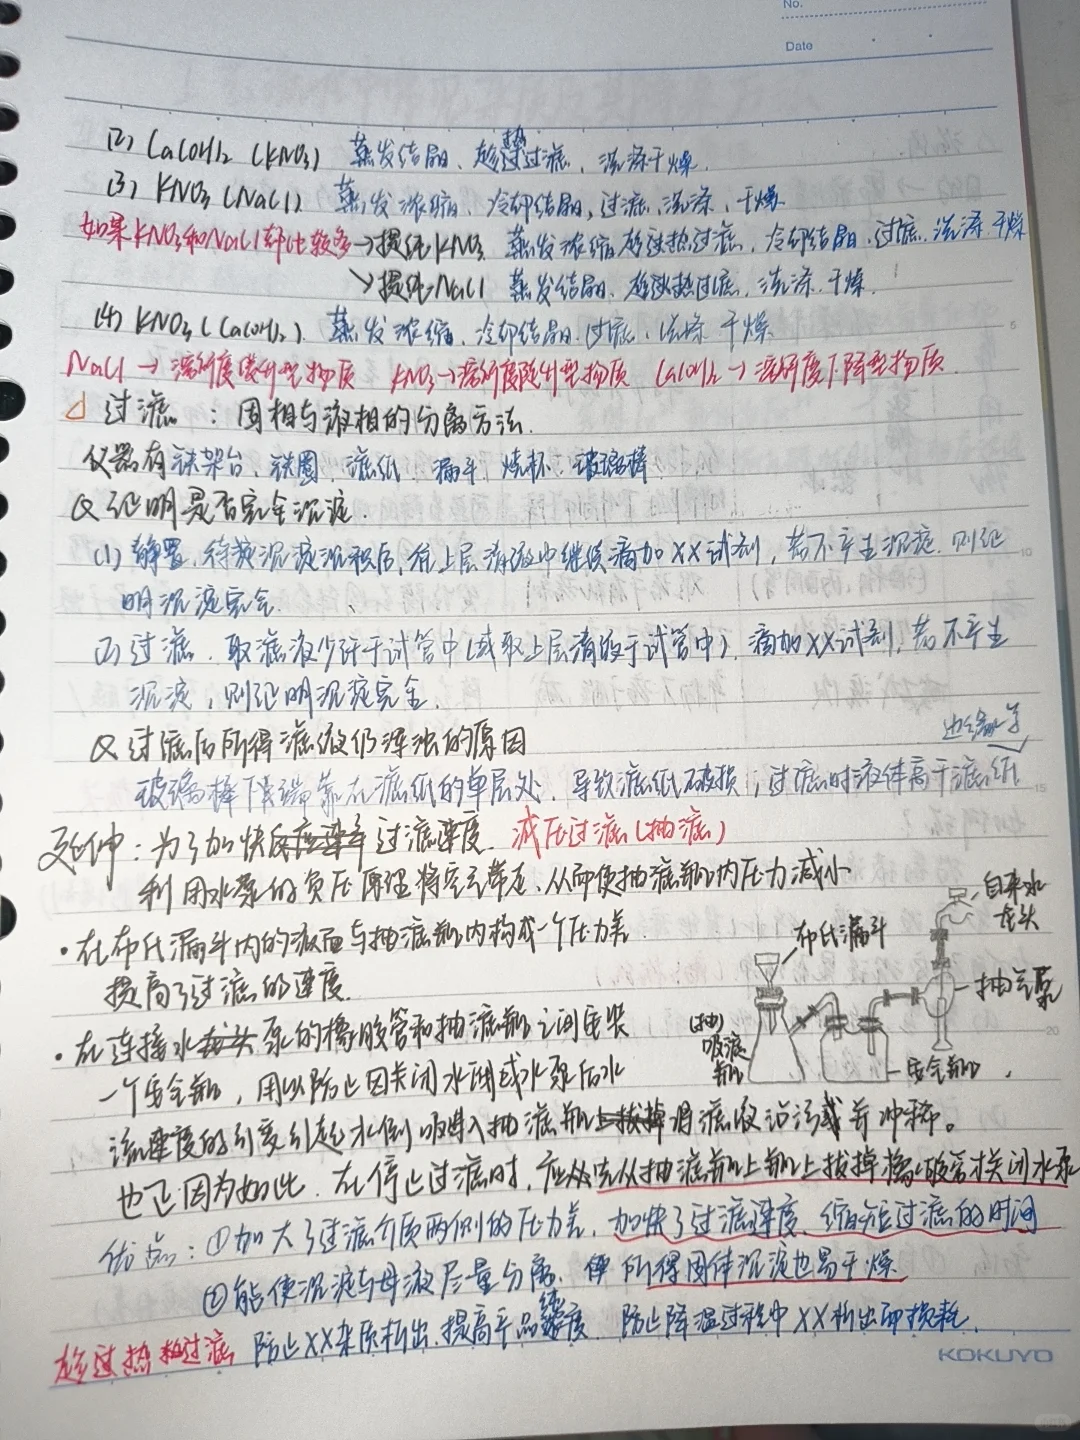 No.
Date
(2) Ca(OH)2 (KNO3) 蒸发结晶、趁热过滤、洗涤干燥.
(3) KNO3 (NaCl) 蒸发浓缩、冷却结晶,过滤、洗涤、干燥
如果KNO3和NaCl都比较多→提纯KNO3 蒸发浓缩 趁热过滤、冷却结晶、过滤、洗涤 干燥
↘提纯NaCl 蒸发结晶、趁热过滤、洗涤、干燥.
(4) KNO3 (Ca(OH)2) 蒸发浓缩、冷却结晶、过滤、洗涤 干燥
NaCl→溶解度缓升型物质 KNO3→溶解度陡升型物质 Ca(OH)2→溶解度下降型物质
5
△过滤:固相与液相的分离方法.
仪器有铁架台、铁圈、滤纸、漏斗、烧杯、玻璃棒
Q 证明是否完全沉淀.
(1)静置、待其沉淀沉积后,往上层清液中继续滴加XX试剂,若不产生沉淀.则证
10
明沉淀完全.
(2)过滤.取滤液少许于试管中(或取上层清液于试管中),滴加XX试剂,若不产生
沉淀,则证明沉淀完全.
Q 过滤后所得滤液仍浑浊的原因
边缘
玻璃棒下端靠在滤纸的单层处、导致滤纸破损;过滤时液体高于滤纸
15
延伸:为了加快反应速率过滤速度.减压过滤(抽滤)
利用水泵的负压原理将空气带走、从而使抽滤瓶内压力减小
·在布氏漏斗内的液面与抽滤瓶内构成一个压力差
提高了过滤的速度.
自来水
龙头
布氏漏斗
抽气泵
(抽)
吸滤
瓶
安全瓶
20
·在连接水龙头泵的橡胶管和抽滤瓶之间安装
一个安全瓶,用以防止因关闭水阀或水泵后水
流速度的引变引起水倒吸入抽滤瓶将滤液沾污或并冲稀。
也正因为如此.在停止过滤时,应从先从抽滤瓶上拔掉橡胶管才关闭水泵
优点:①加大了过滤介质两侧的压力差,加快了过滤速度、缩短过滤的时间
②能使沉淀与母液尽量分离、使所得固体沉淀也易干燥
趁热过滤 防止XX杂质析出、提高产品纯度 防止降温过程中XX析出而损耗.
KOKUYO